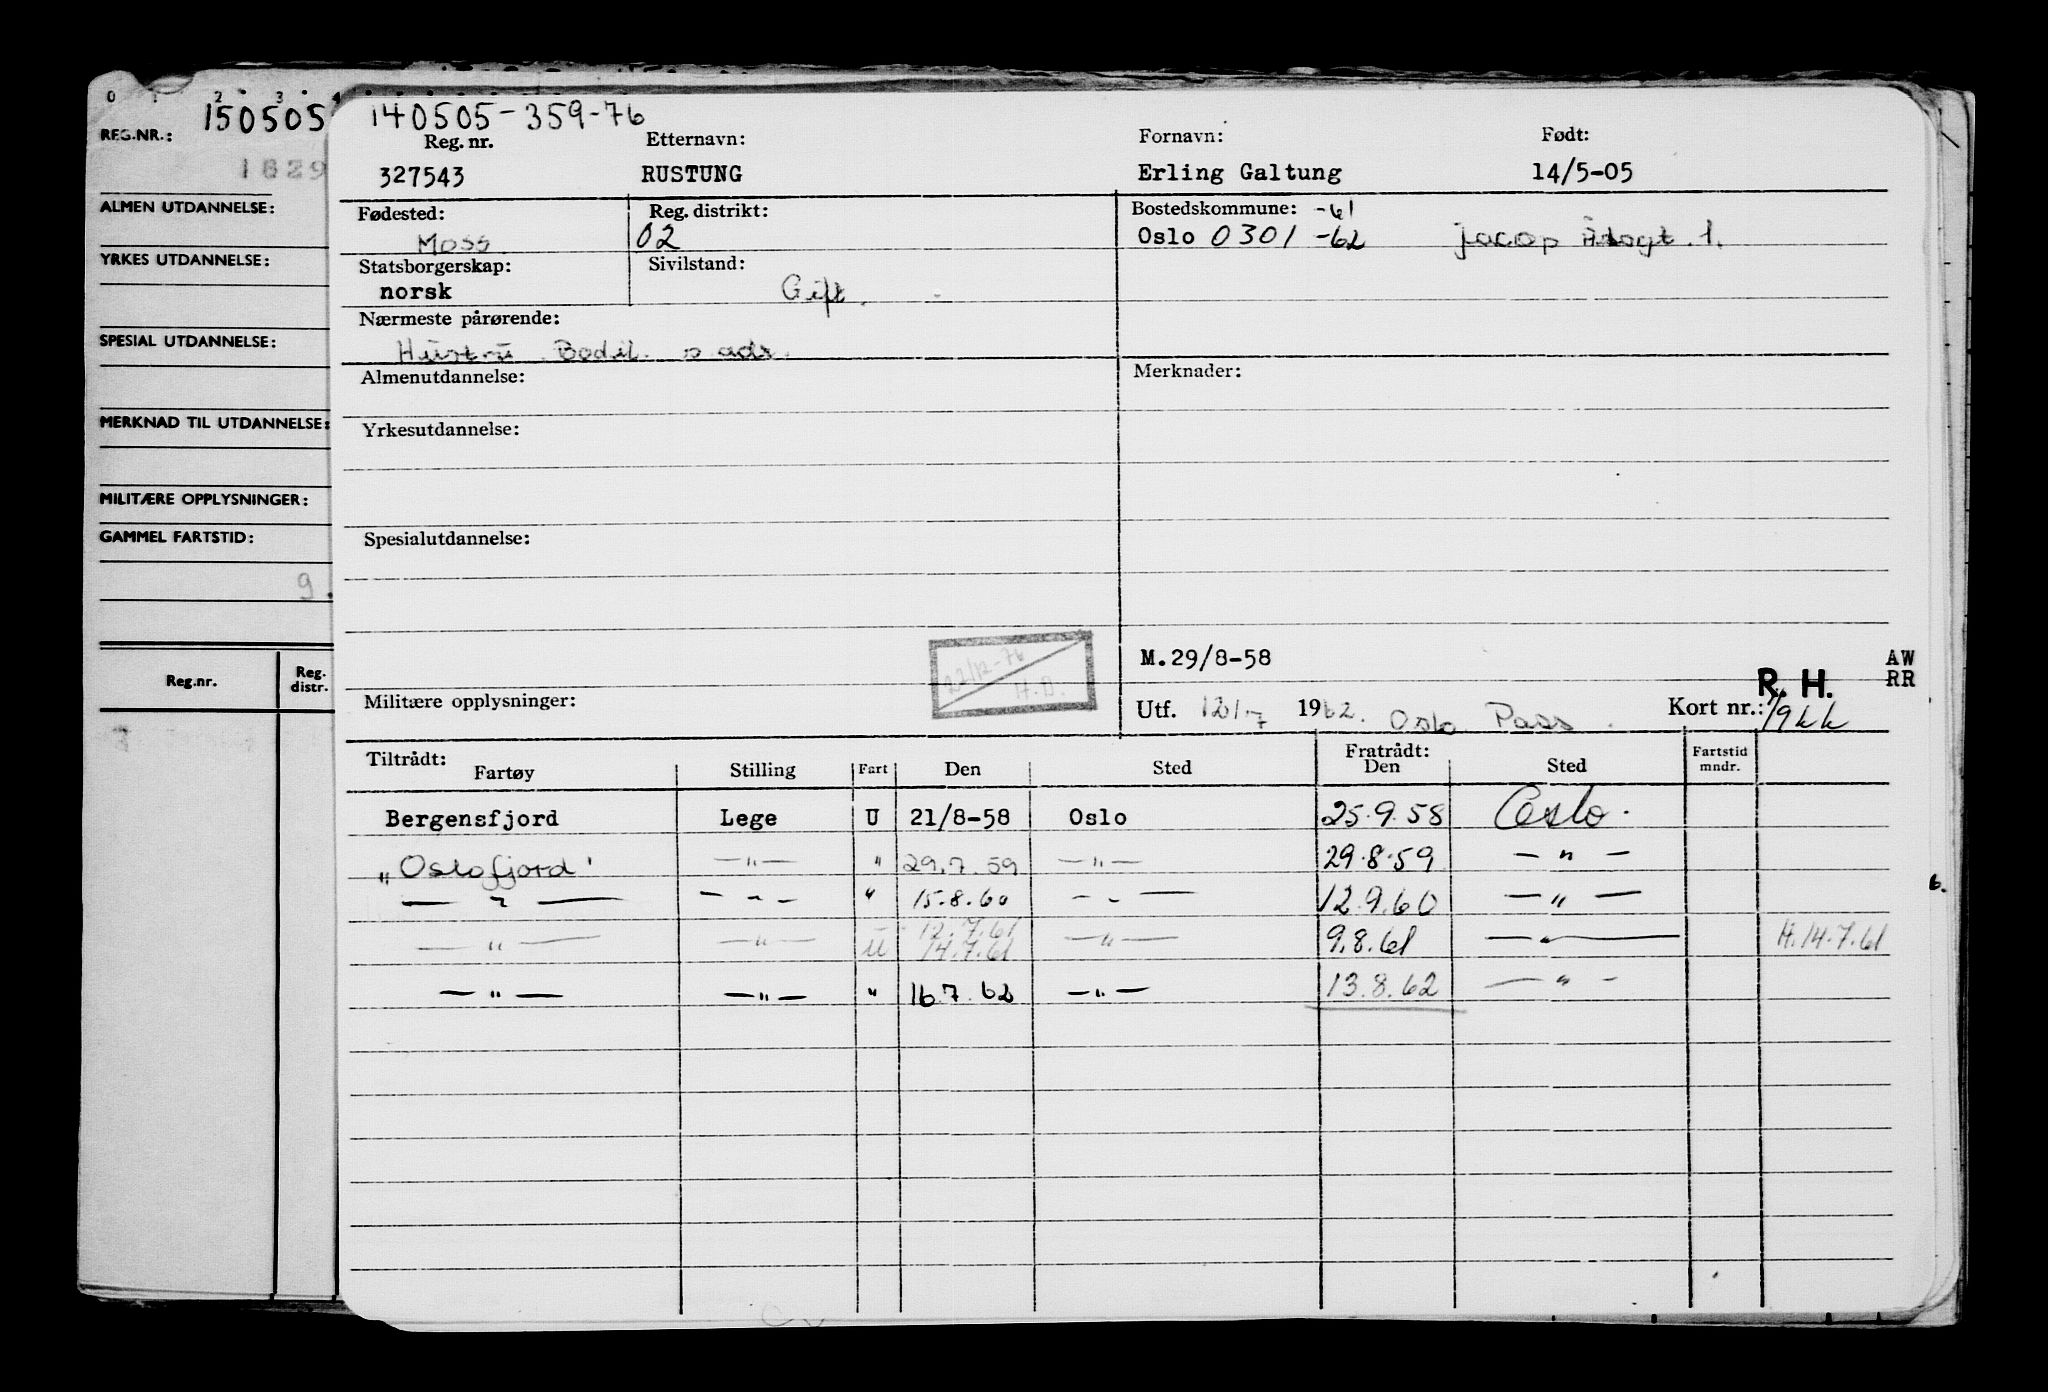 0 1 2 3 4
REG.NR.: 150505
1829
ALMEN UTDANNELSE:
YRKES UTDANNELSE:
SPESIAL UTDANNELSE:
MERKNAD TIL UTDANNELSE:
MILITÆRE OPPLYSNINGER:
GAMMEL FARTSTID:
9.
Reg.nr. Reg. distr.
140505-359-76
Reg. nr. Etternavn: Fornavn: Født:
327543 RUSTUNG Erling Galtung 14/5-05
Fødested: Reg. distrikt: Bostedskommune: -61
Moss 02 Oslo 0301 -62 Jacop Aalsgt. 1.
Statsborgerskap: Sivilstand:
norsk Gift.
Nærmeste pårørende:
Hustru Bodil s adr.
Almenutdannelse: Merknader:
Yrkesutdannelse:
Spesialutdannelse:
22/12-76
H.D.
M.29/8-58 AW
R. H. RR
Militære opplysninger: Utf. 12/7 1962. Oslo Pass. Kort nr.:
Tiltrådt: Fratrådt:
Fartøy Stilling Fart Den Sted Den Sted Fartstid mndr.
Bergensfjord Lege U 21/8-58 Oslo 25.9.58 Oslo.
"Oslofjord" —"— " 29.7.59 —"— 29.8.59 —"—
—"— —"— " 15.8.60 —"— 12.9.60 —"—
12.7.61
—"— —"— U 14.7.61 —"— 9.8.61 —"— H.14.7.61
—"— —"— " 16.7.62 —"— 13.8.62 —"—
6.